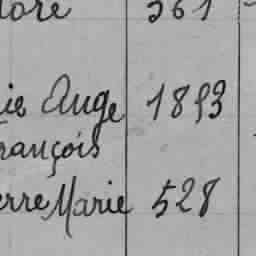 561
Ange 1893
François
erre Marie 528